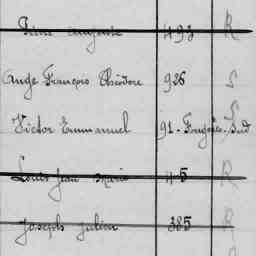 Pierre Auguste 493 R
Ange François Théodore 926 S
Victor Emmanuel 91 - Fougères. Sud S
Louis Jean Marie 45 R
Joseph Julien 385 R